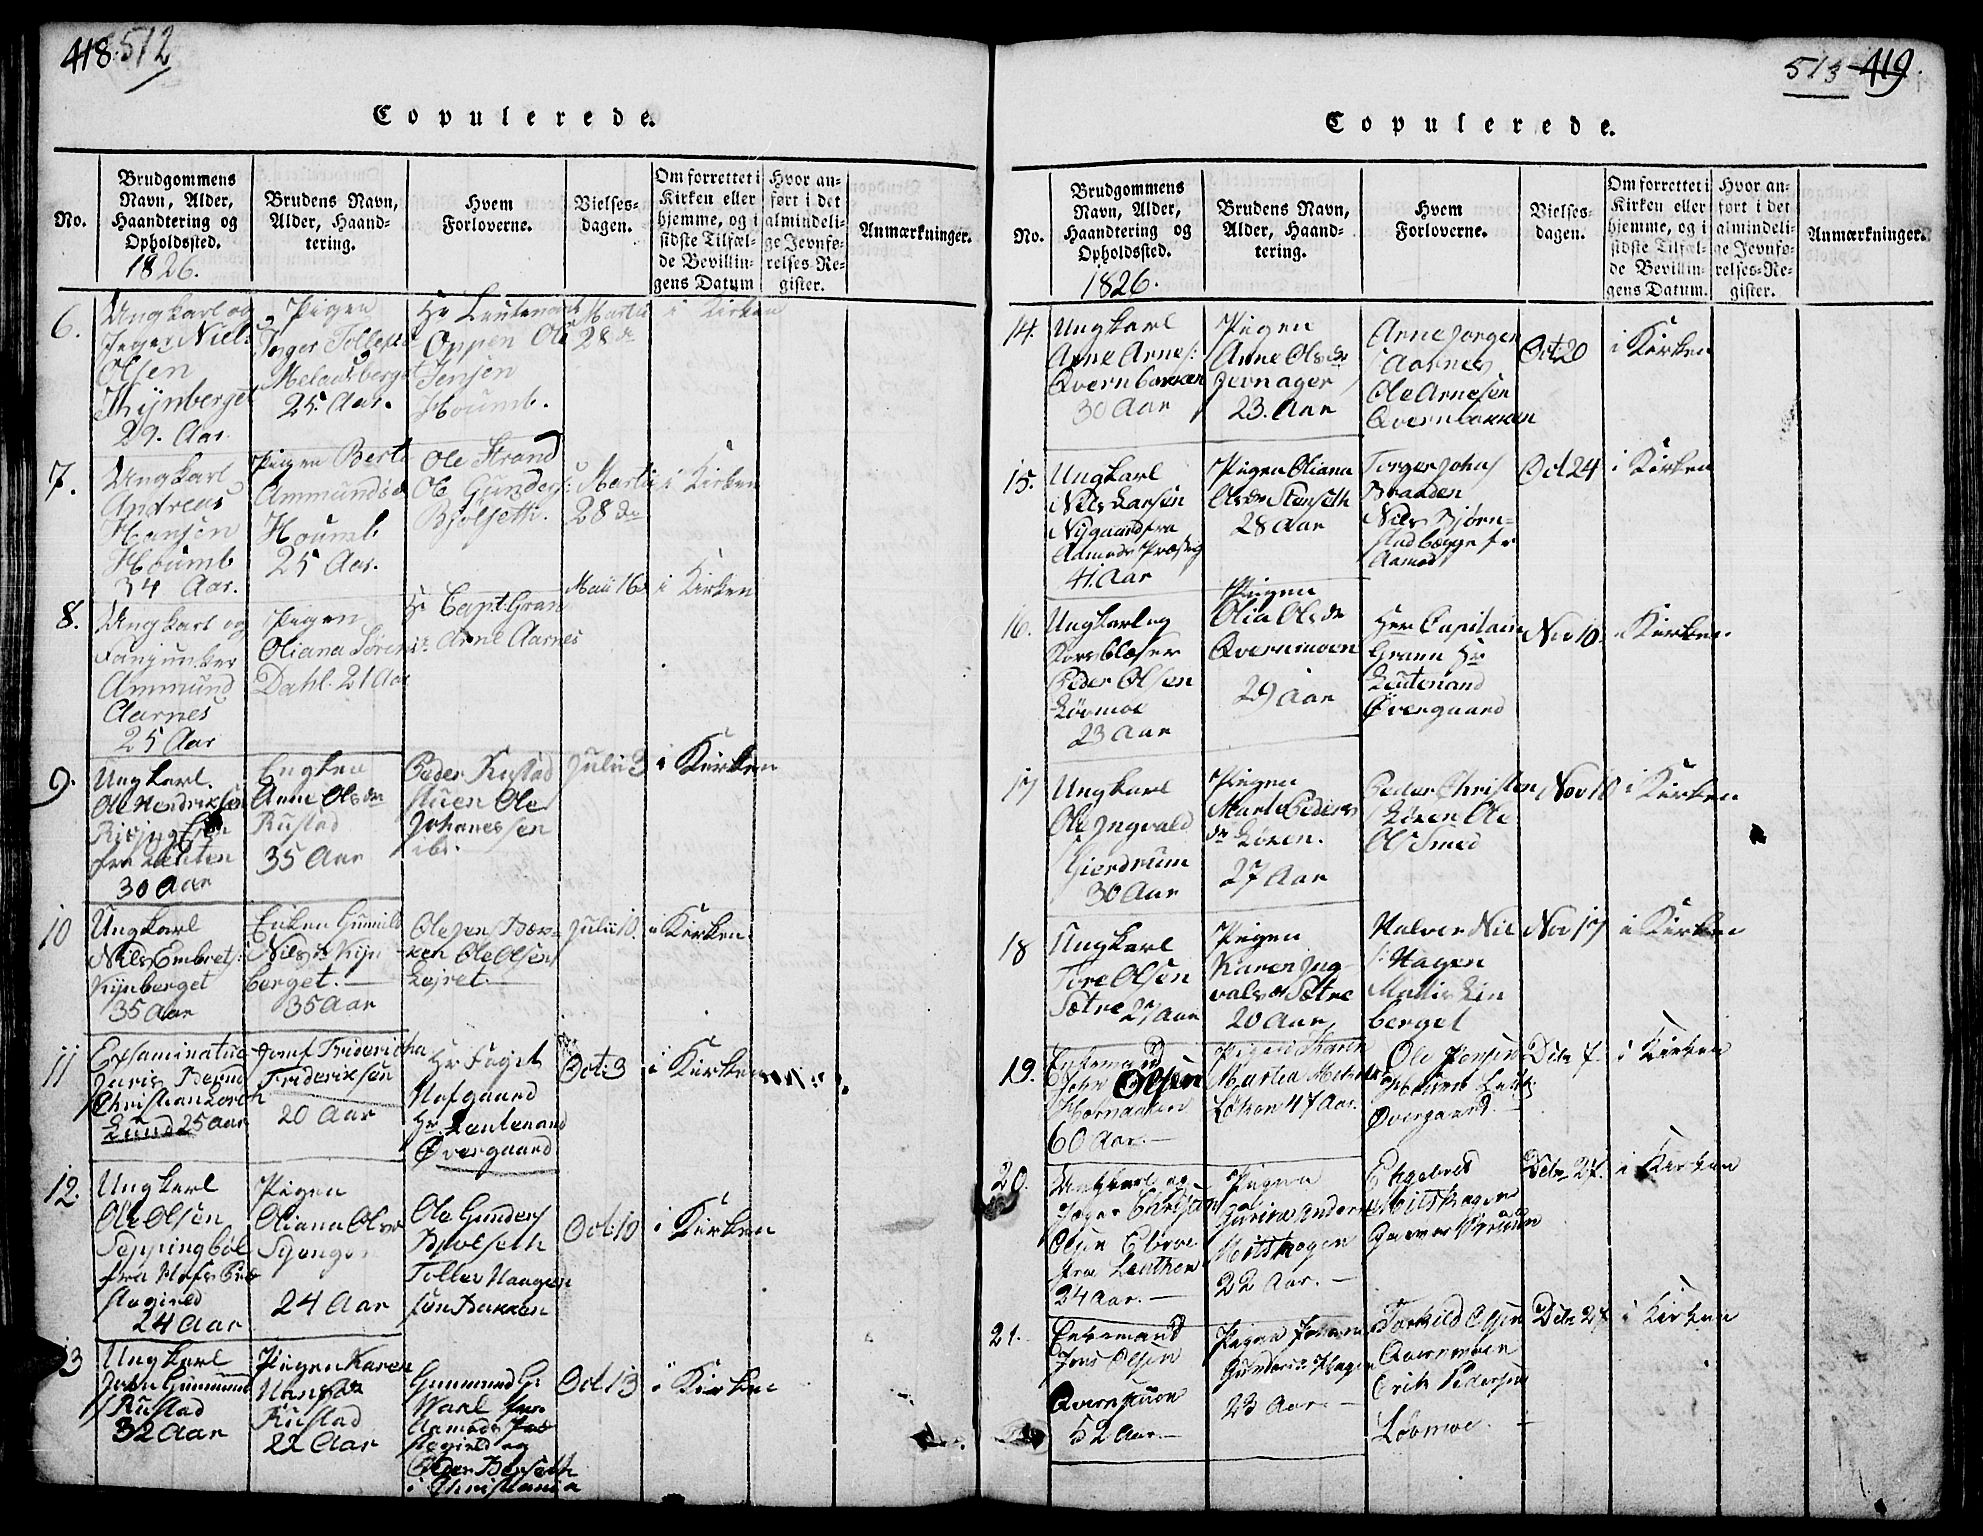 418. 512
Copulerede.
No.
Brudgommens
Navn, Alder,
Haandtering og
Opholdssted.
1826.
Brudens Navn,
Alder, Haand-
tering.
Hvem
Forloverne.
Vielses-
dagen.
Om forrettet i
Kirken eller
hjemme, og i
sidste Tilfæl-
de Bevillin-
gens Datum
Hvor an-
ført i det
almindeli-
ge Jevnfø-
relses-Re-
gister.
Anmærkninger.
6.
Ungkarl og
Jeger Niels
Olsen
Kynberget
29. Aar.
Pigen
Inger Tollefsd
25. Aar.
Hr Leutenant
Oppen Ole
Jensen
Houmb.
Martii
28 de
i Kirken
7.
Ungkarl
Andreas
Hansen
Houmb
34 Aar.
Pigen Berte
Ammundsd
Houmb
25 Aar.
Ole Strand
Ole Gunders:
Bjolsetti.
Martii
28 de
i Kirken
8.
Ungkarl og
Fanjunker
Ammund
Aarnes
25 Aar
Pigen
Oliana Sören
Dahl. 21 Aar
Hr Capt: Gran
Arne Aarnes
Maii 16
i Kirken
9.
Ungkarl.
Ole Hendriksen
fra Leuten
30 Aar
Enken
Anne Olsdr
Rustad
35 Aar
Peder Rustad
stuen Ole
Johanessen
ibi.
Julii 3
i Kirken
10
Ungkarl
Nils Embrets:
Kynberget
35 Aar
Enken Gunild
Nilsdr Kyn
berget.
35 Aar
Ole Olsen
Lejret.
Julii 10.
i Kirken.
11
Exsaminatus
Juris Bernd
Christian Lorch
Lund 25 Aar
Jomf Fridericha
Frideriksen
20 Aar
Hr Foget
Nofgaard
Hr. Leutenand
Øvergaard
Oct: 3
i Kirken
12.
Ungkarl
Ole Olsen
Seppingböl
fra Hofs Præ
stegield
24 Aar
Pigen
Oliana Olsdr
24 Aar
Ole Gunders
Bjolseth
Tollev Haagen
sen Bakken
Oct: 10
i Kirken
13
Ungkarl
John Gunnmunds
Rustad
32 Aar
Pigen Karen
Hansdr
Rustad
22 Aar
Gunmund G:
Aamods Præ
stegield og
Peder Berseth
i Christiania
Oct. 13
i Kirken
513 419.
Copulerede.
No.
Brudgommens
Navn, Alder,
Haandtering og
Opholdssted.
1826.
Brudens Navn,
Alder, Haand-
tering.
Hvem
Forloverne.
Vielses-
dagen.
Om forrettet i
Kirken eller
hjemme, og i
sidste Tilfæl-
de Bevillin-
gens Datum.
Hvor an-
ført i det
almindeli-
ge Jevnfø-
relses-Re-
gister.
Anmærkninger.
14.
Ungkarl
Arne Arnes:
Qvernbakken
30 Aar
Pigen
Anne Olsdr
Jevnager
23. Aar
Arne Jorgen
Aarnes
Ole Arnesen
Qvernbakken
Oct: 20
i Kirken
15.
Ungkarl
Nils Larsen
Nygaard fra
Aamods Præstg
41. Aar
Pigen Oliana
Olsdr Stenseth
28 Aar
Torger Johns
Braaden
Nils Bjørn-
stad begge fr
Aamod
Oct 24
i Kirken
16.
Ungkarl og
Peder Olsen
Lövmoe
23 Aar
Pigen
Olia Olsdr
Qvernmoen
29 Aar
Her Capitain
Grann Hr
Leutenand
Øvergaard
Nov 10.
i Kirken.
17
Ungkarl
Ole Ingvald
Gierdrum
30 Aar
Pigen
Marte Peders
dr Løken.
27 Aar
Peder Christen
Løken Ole
Ols Smed
Nov 10
i Kirken
18
Ungkarl
Tore Olsen
Sætre 27 Aar
Pigen
Karen Ing
valsdr Sætre
20 Aar
Halvor Nil
s: Hagen
Mattis Lin
berget
Nov 17
i Kirken
19.
Enkemand
John Olsen
60 Aar.
Pigen Karen
Løken 47 Aar.
Ole Jonsen
Øvergaard
Debr 7.
i Kirken
20.
Ungkarl og
Jæger Christian
Olsen
fra Leuthen
24 Aar.
Pigen
Moitshagen
22 Aar.
Engebret
Moitshagen
Debr 27.
i Kirken
21.
Enkemand
Jens Olsen
Qvernstuen
52 Aar.
Pigen
23 Aar.
Torkild Olsen
Qvernmoen
Erik Pedersen
Lövmoe.
Debr 27
i Kirken